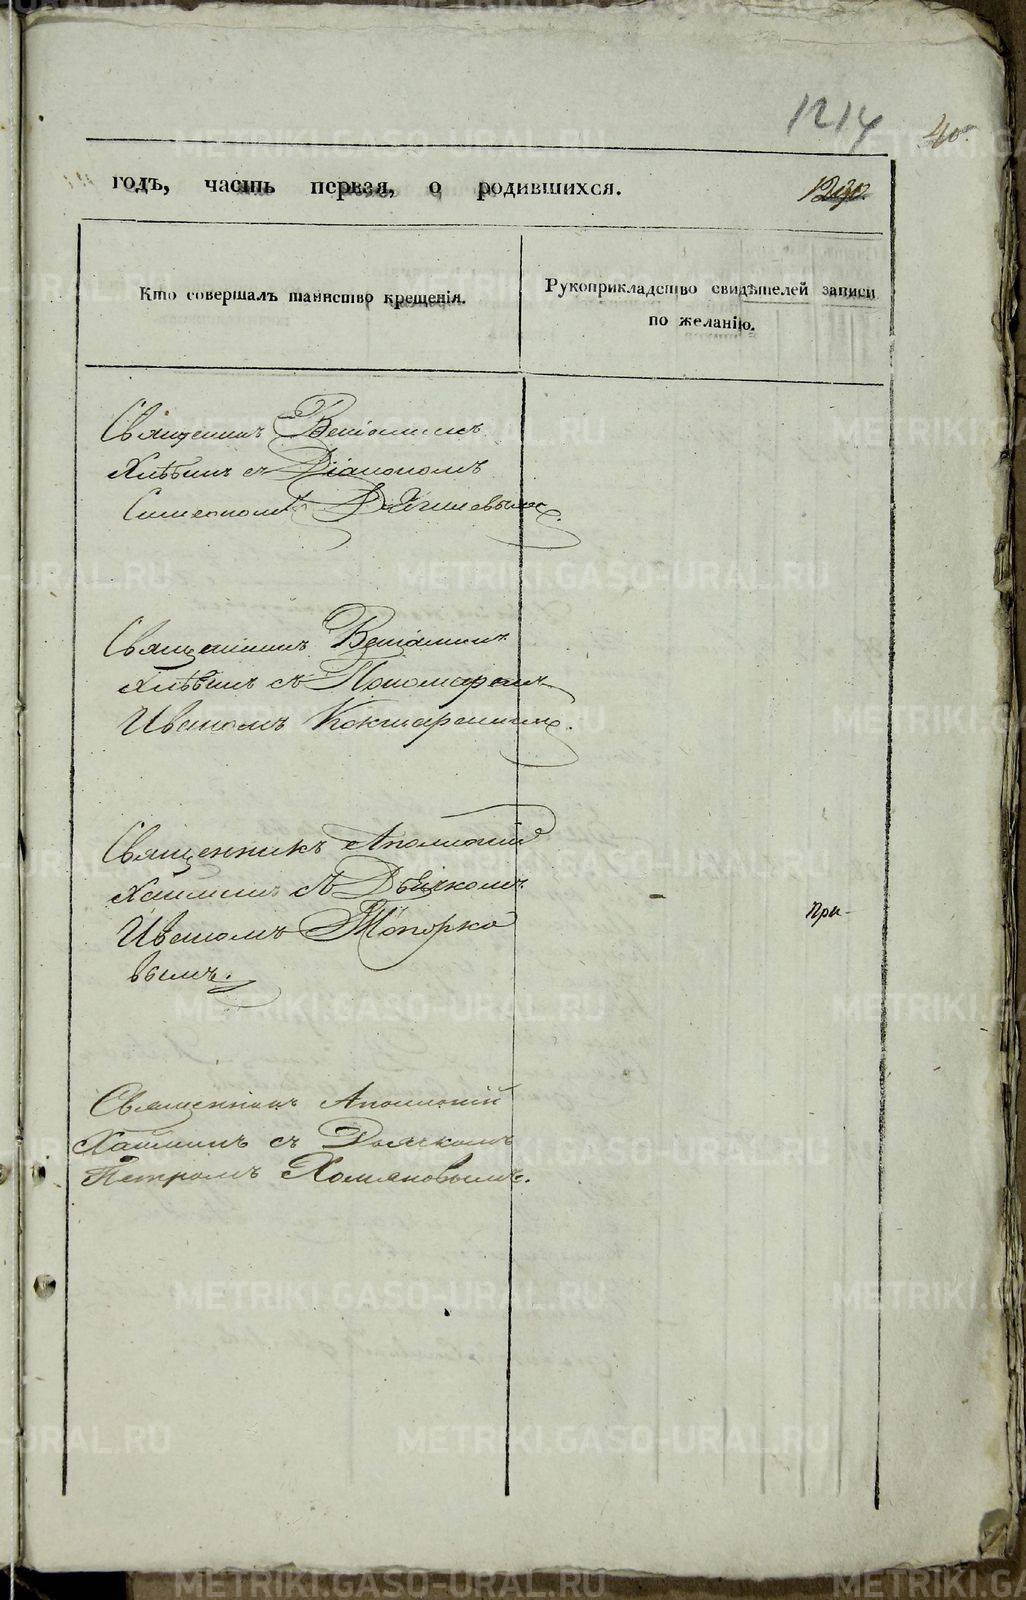 1214
40
годъ, часть первая, о родившихся.
Кто совершалъ таинство крещенія.
Рукоприкладство свидѣтелей записи
по желанію.
Священникъ Веніаминъ
Хлѣбинъ съ Діакономъ
Симеономъ
Священникъ Веніаминъ
Хлѣбинъ съ Пономаремъ
Иваномъ Кокшарскимъ.
Священникъ Аполлоній
съ Дьячкомъ
Иваномъ Топорко
вымъ.
При-
Священникъ Аполлоній
съ Дьячкомъ
Петромъ Хомяковымъ.
METRIKI.GASO-URAL.RU